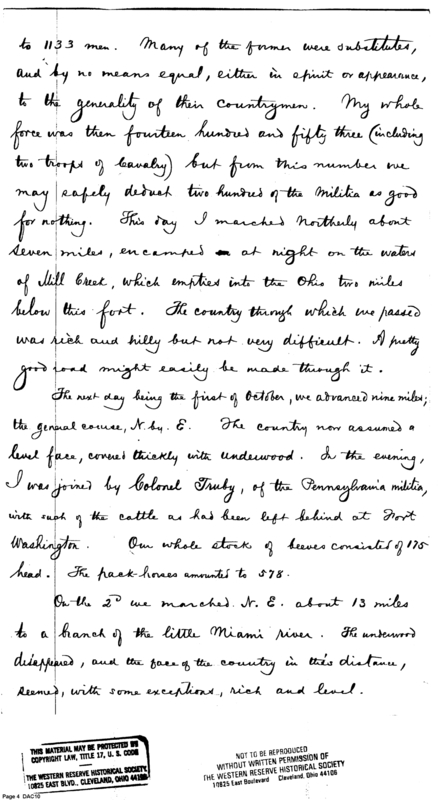 to 1133 men. Many of the former were substitutes,
and by no means equal, either in spirit or appearance,
to the generality of their countrymen. My whole
force was then fourteen hundred and fifty three (including
two troops of Cavalry) but from this number we
may safely deduct two hundred of the Militia as good
for nothing. This day I marched Northerly about
seven miles, encamped at night on the waters
of Mill Creek, which empties into the Ohio two miles
below this fort. The country through which we passed
was rich and hilly but not very difficult. A pretty
good road might easily be made through it.
The next day being the first of October, we advanced nine miles;
the general course, N. by. E. The country now assumed a
level face, covered thickly with underwood. In the evening,
I was joined by Colonel Truby, of the Pennsylvania militia,
with such of the cattle as had been left behind at Fort
Washington. Our whole stock of beeves consisted of 175
head. The pack-horses amounted to 578.
On the 2d we marched N. E. about 13 miles
to a branch of the little Miami river. The underwood
disappeared, and the face of the country in this distance,
seemed, with some exceptions, rich and level.
THIS MATERIAL MAY BE PROTECTED BY
COPYRIGHT LAW, TITLE 17, U. S. CODE
THE WESTERN RESERVE HISTORICAL SOCIETY
10825 EAST BLVD., CLEVELAND, OHIO 44106
NOT TO BE REPRODUCED
WITHOUT WRITTEN PERMISSION OF
THE WESTERN RESERVE HISTORICAL SOCIETY
10825 East Boulevard Cleveland, Ohio 44106
Page 4 DAC10